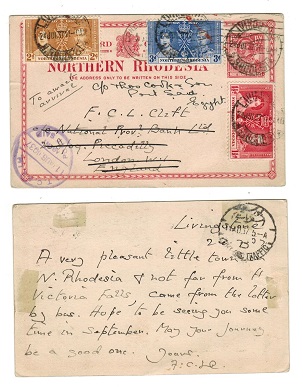 NORTHERN RHODESIA
THE ADDRESS ONLY TO BE WRITTEN ON THIS SIDE
To await
arrival
c/o Thos Cook & Son
Port Said
Egypt
F. C. L. Clift
National Prov. Bank Ltd
Piccadilly
London W1
2d
3d
NORTHERN RHODESIA
Livingstone
A very pleasant little town
N. Rhodesia & not far from
Victoria Falls, came from the latter
by bus. Hope to be seeing you some
time in September. May your journey
be a good one. Yours.